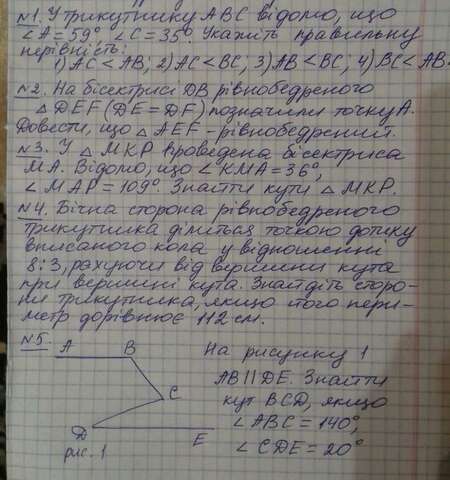 №1. У трикутнику ABC відомо, що
∠A = 59°, ∠C = 35°. Укажіть правильну
нерівність:
1) AC < AB; 2) AC < BC; 3) AB < BC; 4) BC < AB
№2. На бісектрисі DB рівнобедреного
△DEF (DE = DF) позначили точку A.
Довести, що △AEF – рівнобедрений.
№3. У △MKP проведена бісектриса
MA. Відомо, що ∠KMA = 36°,
∠MAP = 109°. Знайти кути △MKP.
№4. Бічна сторона рівнобедреного
трикутника ділиться точкою дотику
вписаного кола у відношенні
8:3, рахуючи від вершини кута
при вершині кута. Знайдіть сторо-
ни трикутника, якщо його пери-
метр дорівнює 112 см.
№5.
A B
C
D E
рис. 1
На рисунку 1
AB || DE. Знайти
кут BCD, якщо
∠ABC = 140°,
∠CDE = 20°